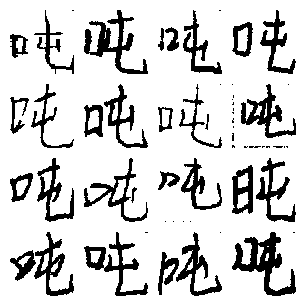 吨吨吨吨
吨吨吨吨
吨吨吨吨
吨吨吨吨